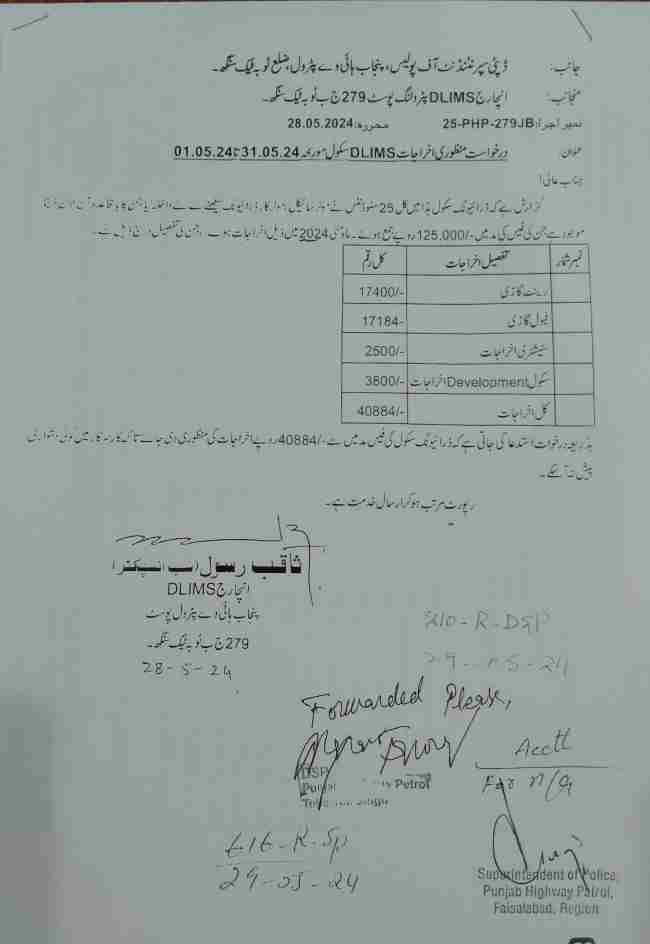 جانب: ڈپٹی سپرنٹنڈنٹ آف پولیس، پنجاب ہائی وے پٹرول، ضلع ٹوبہ ٹیک سنگھ۔
منجانب: انچارج DLIMS پٹرولنگ پوسٹ 279 ج ب ٹوبہ ٹیک سنگھ۔
نمبر اجراء: 25-PHP-279JB محررہ: 28.05.2024
عنوان درخواست منظوری اخراجات DLIMS سکول مورخہ 31.05.24 تا 01.05.24
جناب عالی!
گزارش ہے کہ ڈرائیونگ سکول ہذا میں کل 25 سٹوڈنٹس نے موٹر سائیکل / موٹر کار ڈرائیونگ سیکھنے کے لیے داخلہ لیا جن کا باقاعدہ
موجود ہے جن کی فیس کی مد میں -/125,000 روپے جمع ہوئے۔ ماہ مئی 2024 میں ذیل اخراجات ہوئے، جن کی تفصیل ذیل ہے۔
نمبر شمار تفصیل اخراجات کل رقم
رینٹ گاڑی 17400/-
فیول گاڑی 17184-
سٹیشنری اخراجات 2500/-
سکول Development اخراجات 3800/-
کل اخراجات 40884/-
بذریعہ درخواست استدعا کی جاتی ہے کہ ڈرائیونگ سکول کی فیس مد میں سے -/40884 روپے اخراجات کی منظوری دی جائے تاکہ کار سرکار میں کوئی دشواری
پیش نہ آ سکے۔
رپورٹ مرتب ہو کر ارسال خدمت ہے۔
ثاقب رسول (سب انسپکٹر)
انچارج DLIMS
پنجاب ہائی وے پٹرول پوسٹ
279 ج ب ٹوبہ ٹیک سنگھ۔
28-5-24
210-R-DSP
29-05-24
Forwarded Please,
DSP
Petrol
Acctt
For n/a
616-R-SP
29-05-24
Superintendent of Police,
Punjab Highway Patrol,
Faisalabad, Region